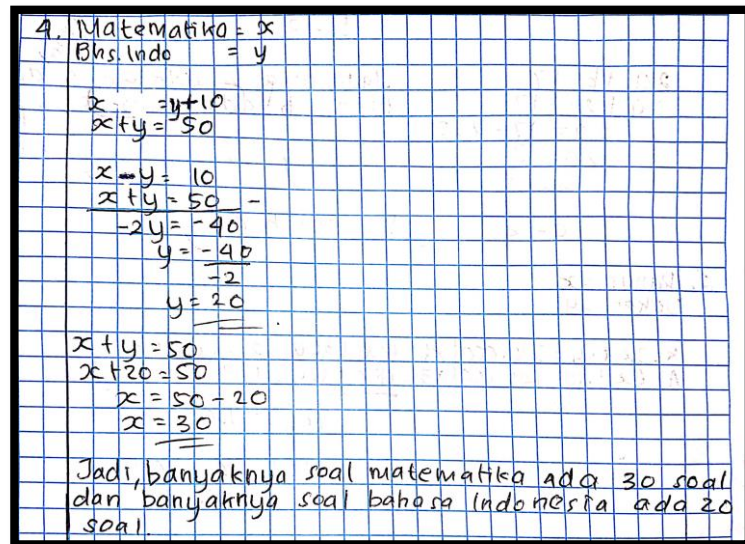 4. Matematika = x
Bhs. Indo = y
x = y+10
x+y = 50
x - y = 10
x + y = 50 -
-2y = -40
y = -40
-2
y = 20
x + y = 50
x+20 = 50
x = 50 - 20
x = 30
Jadi, banyaknya soal matematika ada 30 soal
dan banyaknya soal bahasa Indonesia ada 20
soal.